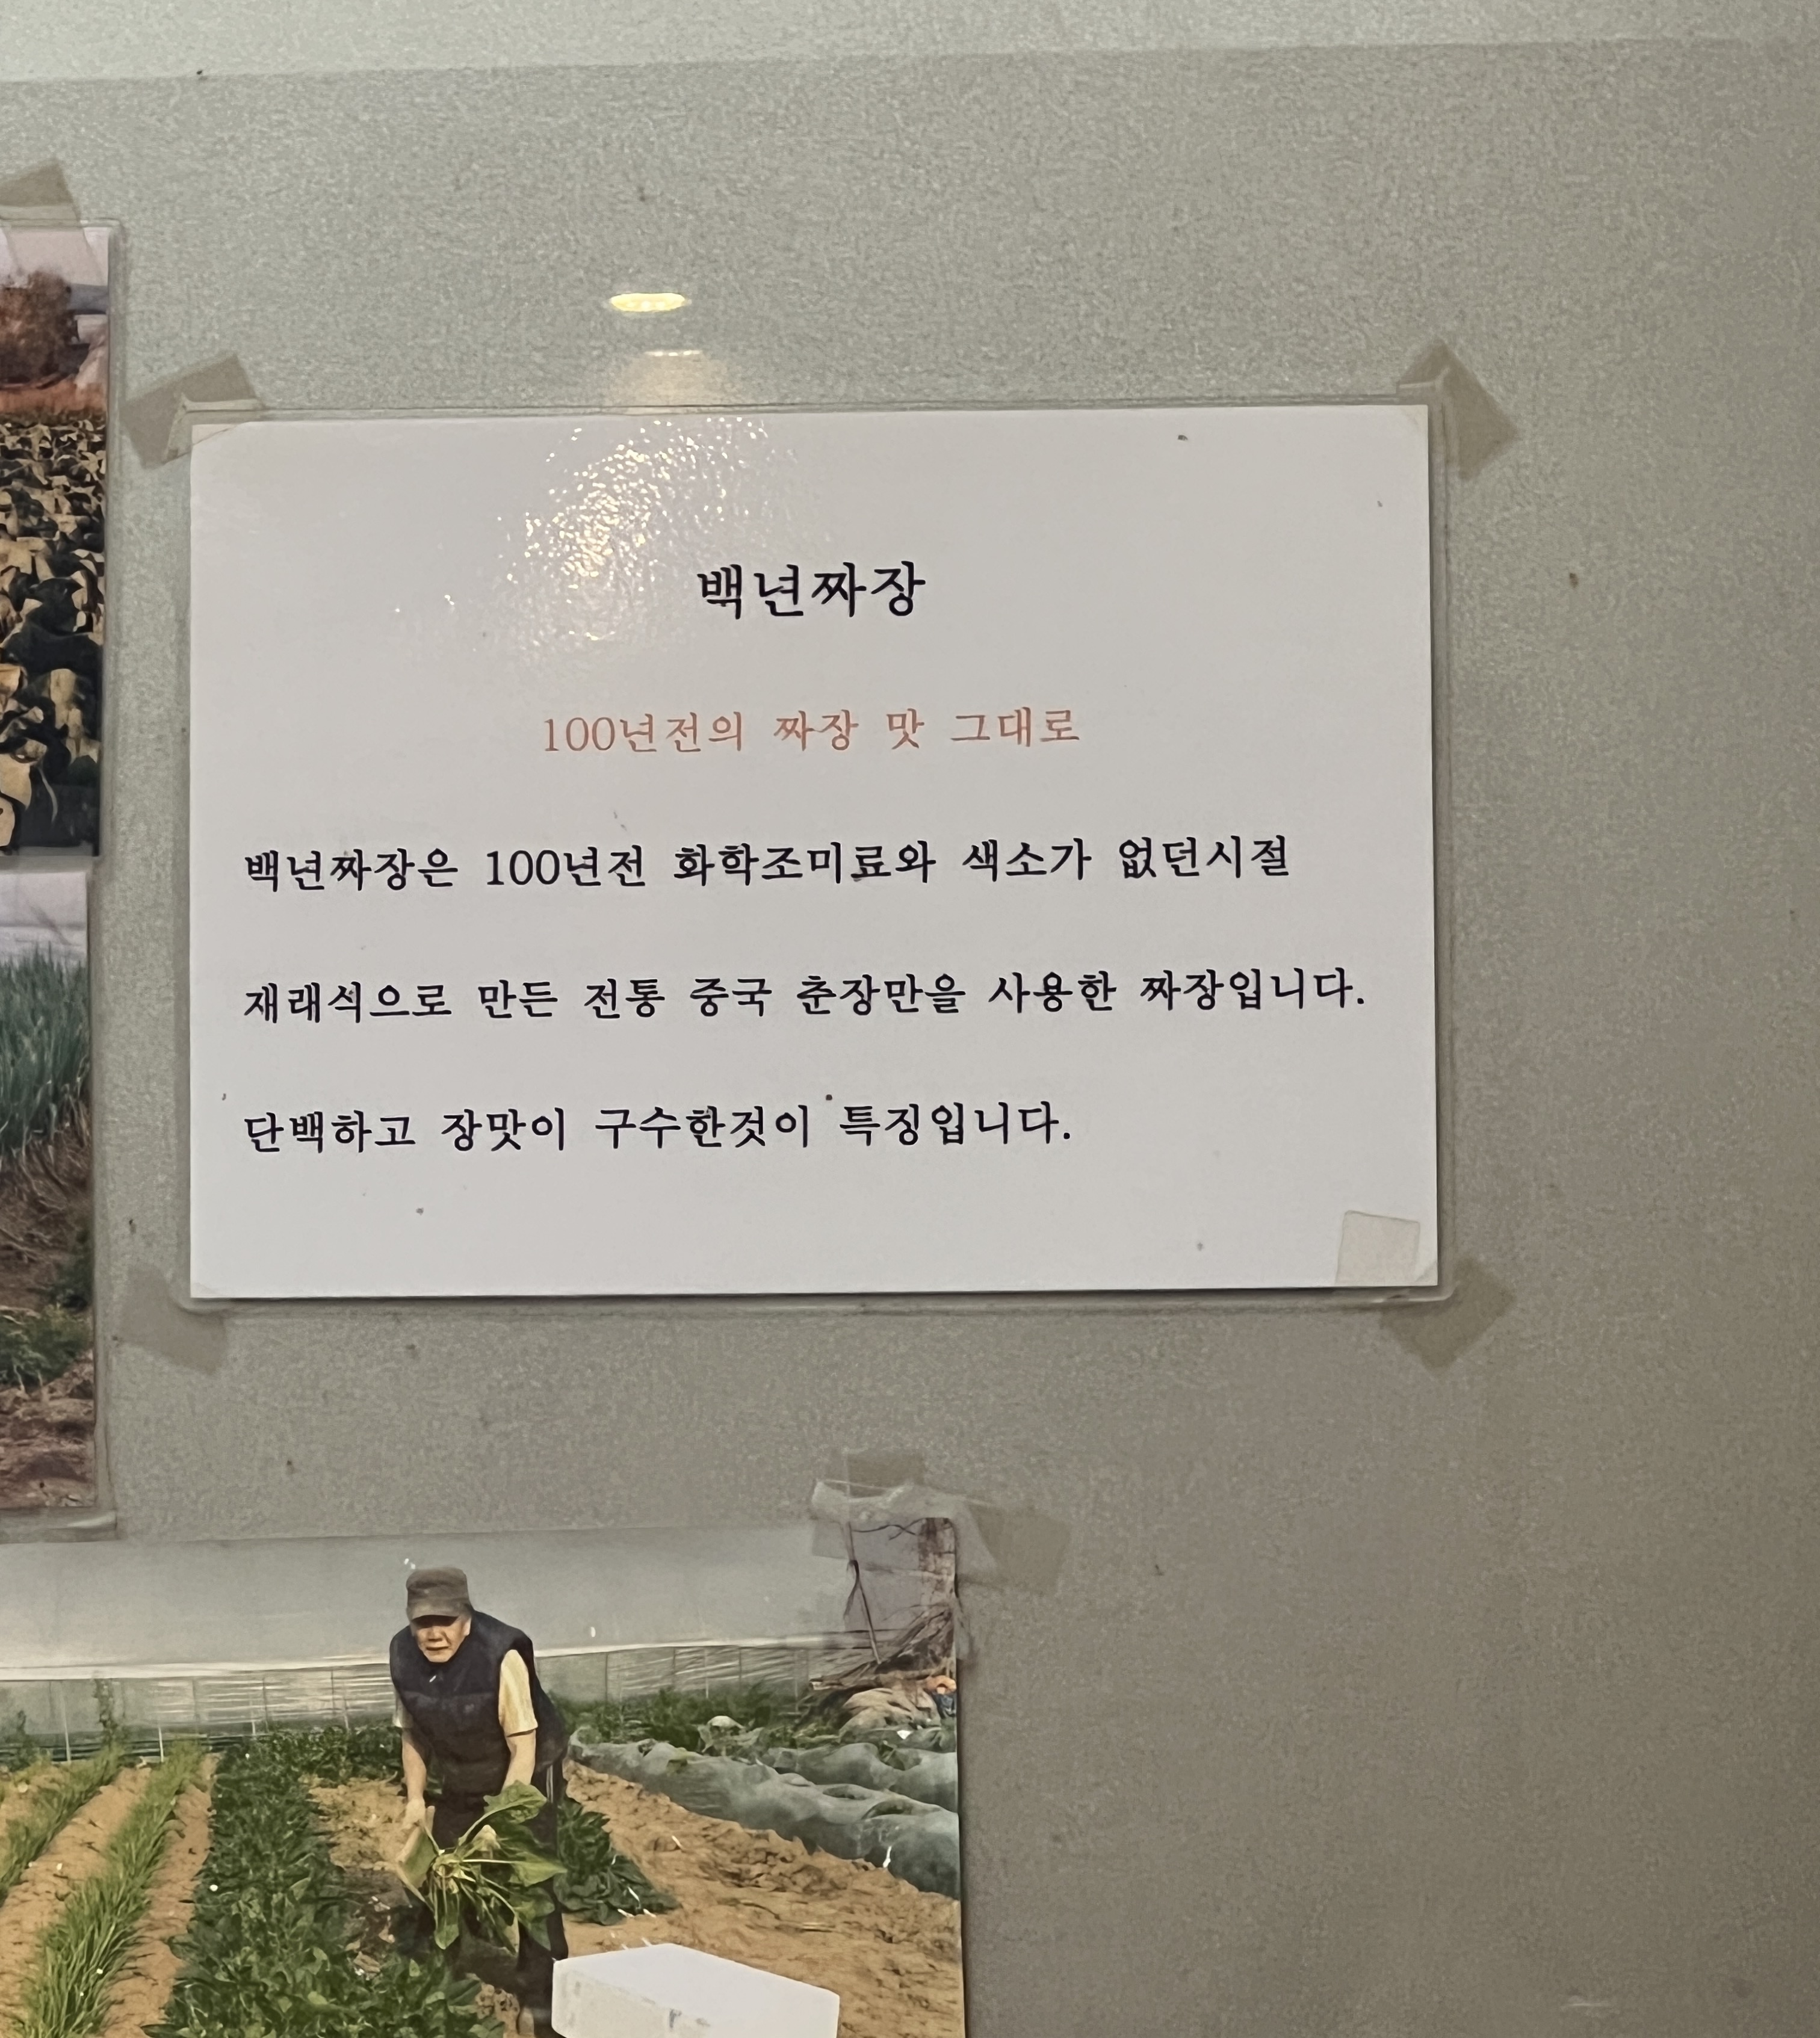 백년짜장
100년전의 짜장 맛 그대로
백년짜장은 100년전 화학조미료와 색소가 없던시절
재래식으로 만든 전통 중국 춘장만을 사용한 짜장입니다.
단백하고 장맛이 구수한것이 특징입니다.